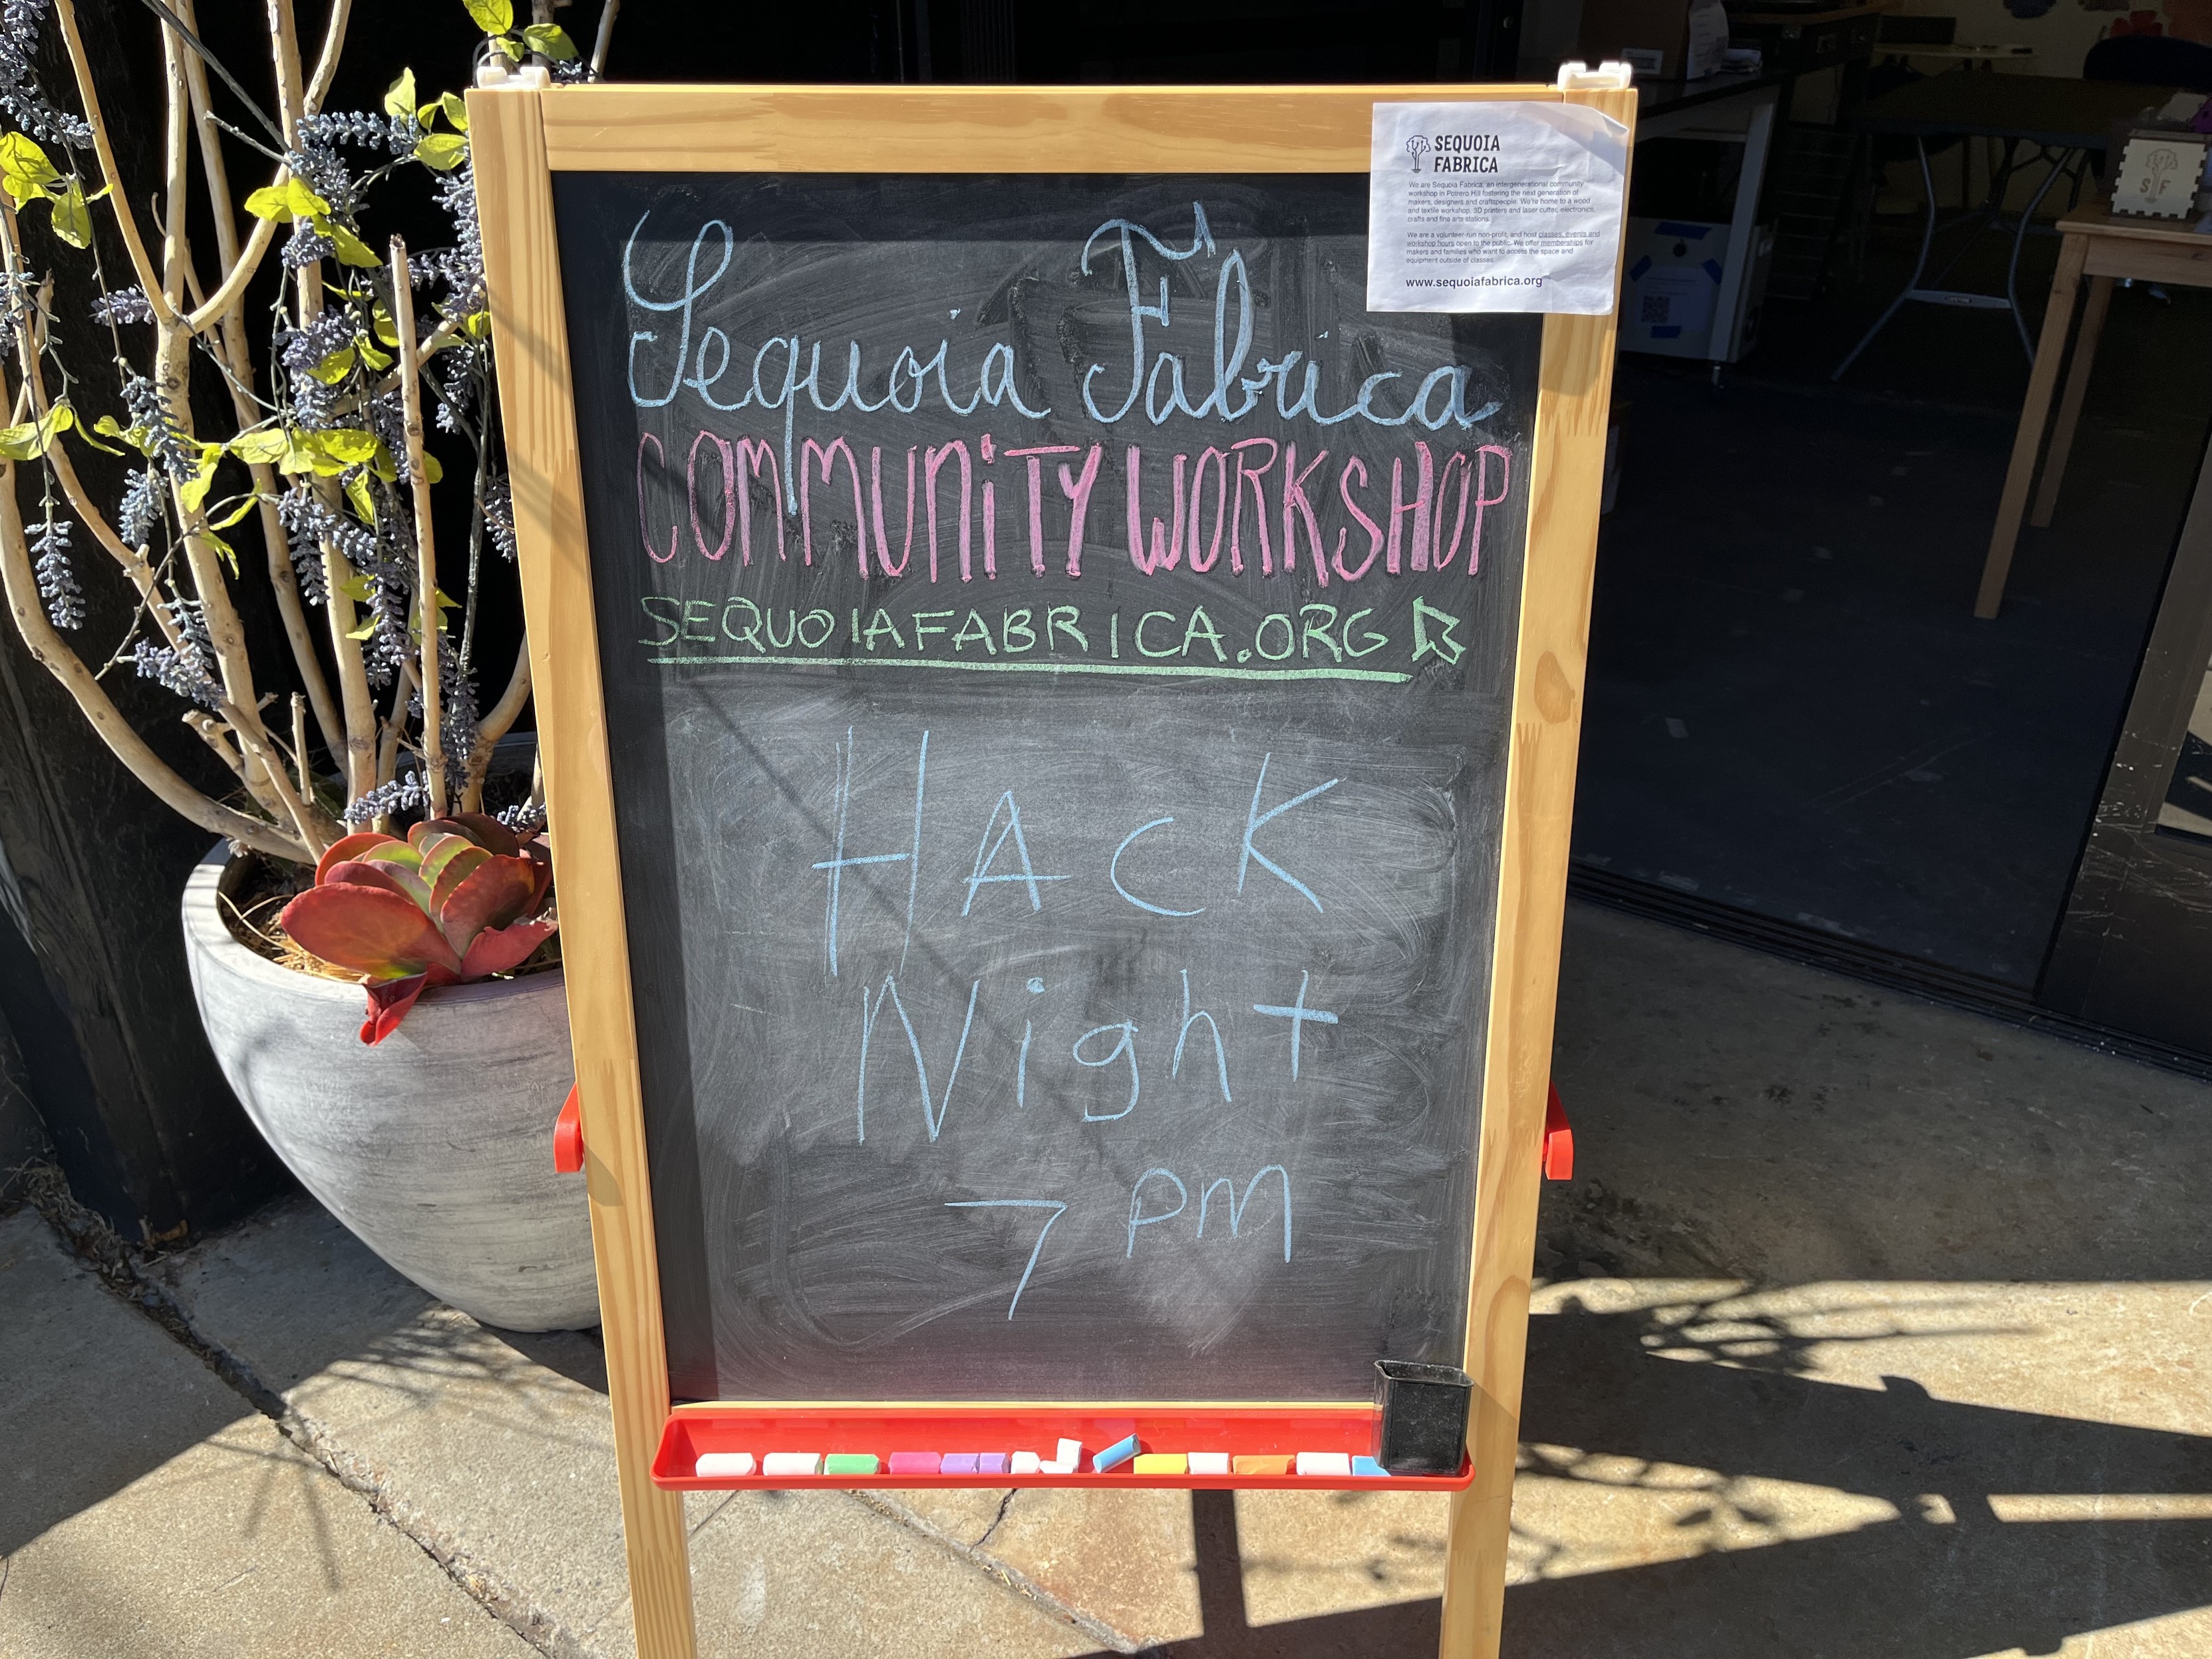 Sequoia Fabrica
COMMUNITY WORKSHOP
SEQUOIAFABRICA.ORG
HACK
Night
7 PM
SEQUOIA
FABRICA
We are Sequoia Fabrica, an intergenerational community
workshop in Potrero Hill fostering the next generation of
makers, designers and craftspeople. We're home to a wood
and textile workshop, 3D printers and laser cutter, electronics,
crafts and fine arts stations.
We are a volunteer-run non-profit, and host classes, events and
workshop hours open to the public. We offer memberships for
makers and families who want to access the space and
equipment outside of classes.
www.sequoiafabrica.org
S F